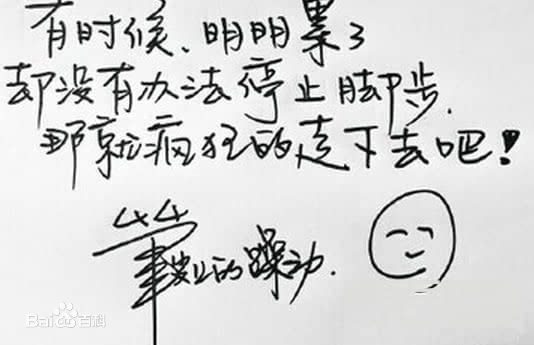 有时候、明明累了
却没有办法停止脚步.
那就疯狂的走下去吧！
笔尖上的躁动.
Baidu百科